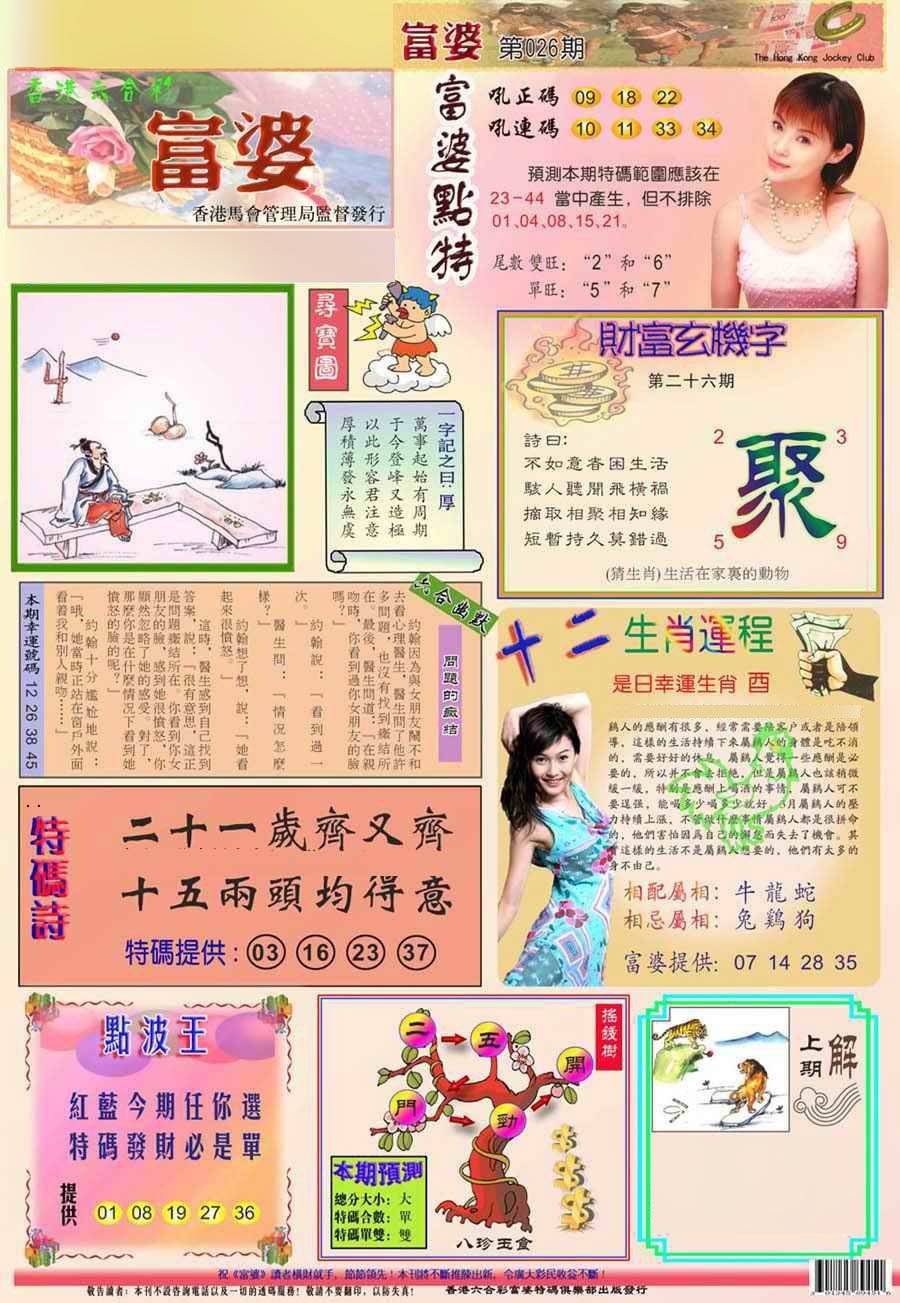 富婆 第026期
The Hong Kong Jockey Club
香港六合彩
富婆
香港馬會管理局監督發行
富婆點特
吼正碼 09 18 22
吼連碼 10 11 33 34
預測本期特碼範圍應該在
23-44 當中產生，但不排除
01､04､08､15､21。
尾數 雙旺：“2”和“6”
單旺：“5”和“7”
尋寶圖
一字記之曰：厚
萬事起始有周期
于今登峰又造極
以此形容君注意
厚積薄發永無虞
財富玄機字
第二十六期
詩曰：
不如意者困生活
駭人聽聞飛橫禍
摘取相聚相知緣
短暫持久莫錯過
2 3
聚
5 9
(猜生肖)生活在家裏的動物
六合幽默
問題的癥結
約翰因為與女朋友鬧不和
去看心理醫生，醫生問了他許
多問題，也沒有找到癥結所
在。最後，醫生問道：「在親
吻時，你看到過你女朋友的臉
嗎？」
約翰說：「看到過一
次。」
醫生問：「情況怎麼
樣？」
約翰想了想，說：「她看
起來很憤怒。」
這時，醫生感到自己找到
答案，說：「很有意思，這正
是問題癥結所在。你看到你女
朋友的臉，感到她很憤怒，你
顯然忽略了她的感受。對了，
那麼你是在什麼情況下看到她
憤怒的臉的呢？」
約翰十分尷尬地說：
「哦，她當時正站在窗戶外面
看着我和別人親吻……」
本期幸運號碼 12 26 38 45
十二生肖運程
是日幸運生肖 酉
鷄人的應酬有很多，經常需要陪客户或者是陪領
導，這樣的生活持續下來屬鷄人的身體是吃不消
的，需要好好的休息。屬鷄人覺得一些應酬是必
要的，所以并不會去拒絶，但是屬鷄人也該稍微
緩一緩，特别是應酬上喝酒的事情，屬鷄人可不
要逞强，能喝多少喝多少就好。5月屬鷄人的壓
力持續上漲，不管做什麽事情屬鷄人都是很拼命
的，他們害怕因爲自己的懈怠而失去了機會。其
實這樣的生活不是屬鷄人想要的，他們有太多的
身不由己。
相配屬相：牛 龍 蛇
相忌屬相：兔 鷄 狗
富婆提供：07 14 28 35
特碼詩
二十一歲齊又齊
十五兩頭均得意
特碼提供：03 16 23 37
點波王
紅藍今期任你選
特碼發財必是單
提供 01 08 19 27 36
搖錢樹
二 五 門 勁 開
本期預測
總分大小：大
特碼合數：單
特碼單雙：雙
八珍玉食
解上期
祝《富婆》讀者橫財就手，節節領先！本刊將不斷推陳出新，令廣大彩民收益不斷！
敬告讀者：本刊不設咨詢電話以及一切的透碼服務！敬請不要翻印，以防失真！ 香港六合彩富婆特碼俱樂部出版發行